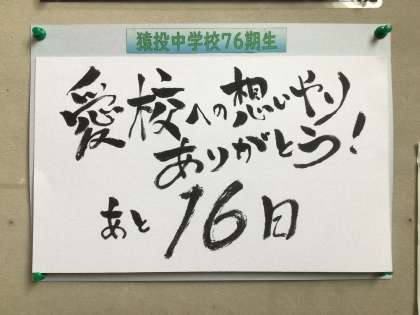 猿投中学校76期生
愛校への想いやり
ありがとう!
あと16日